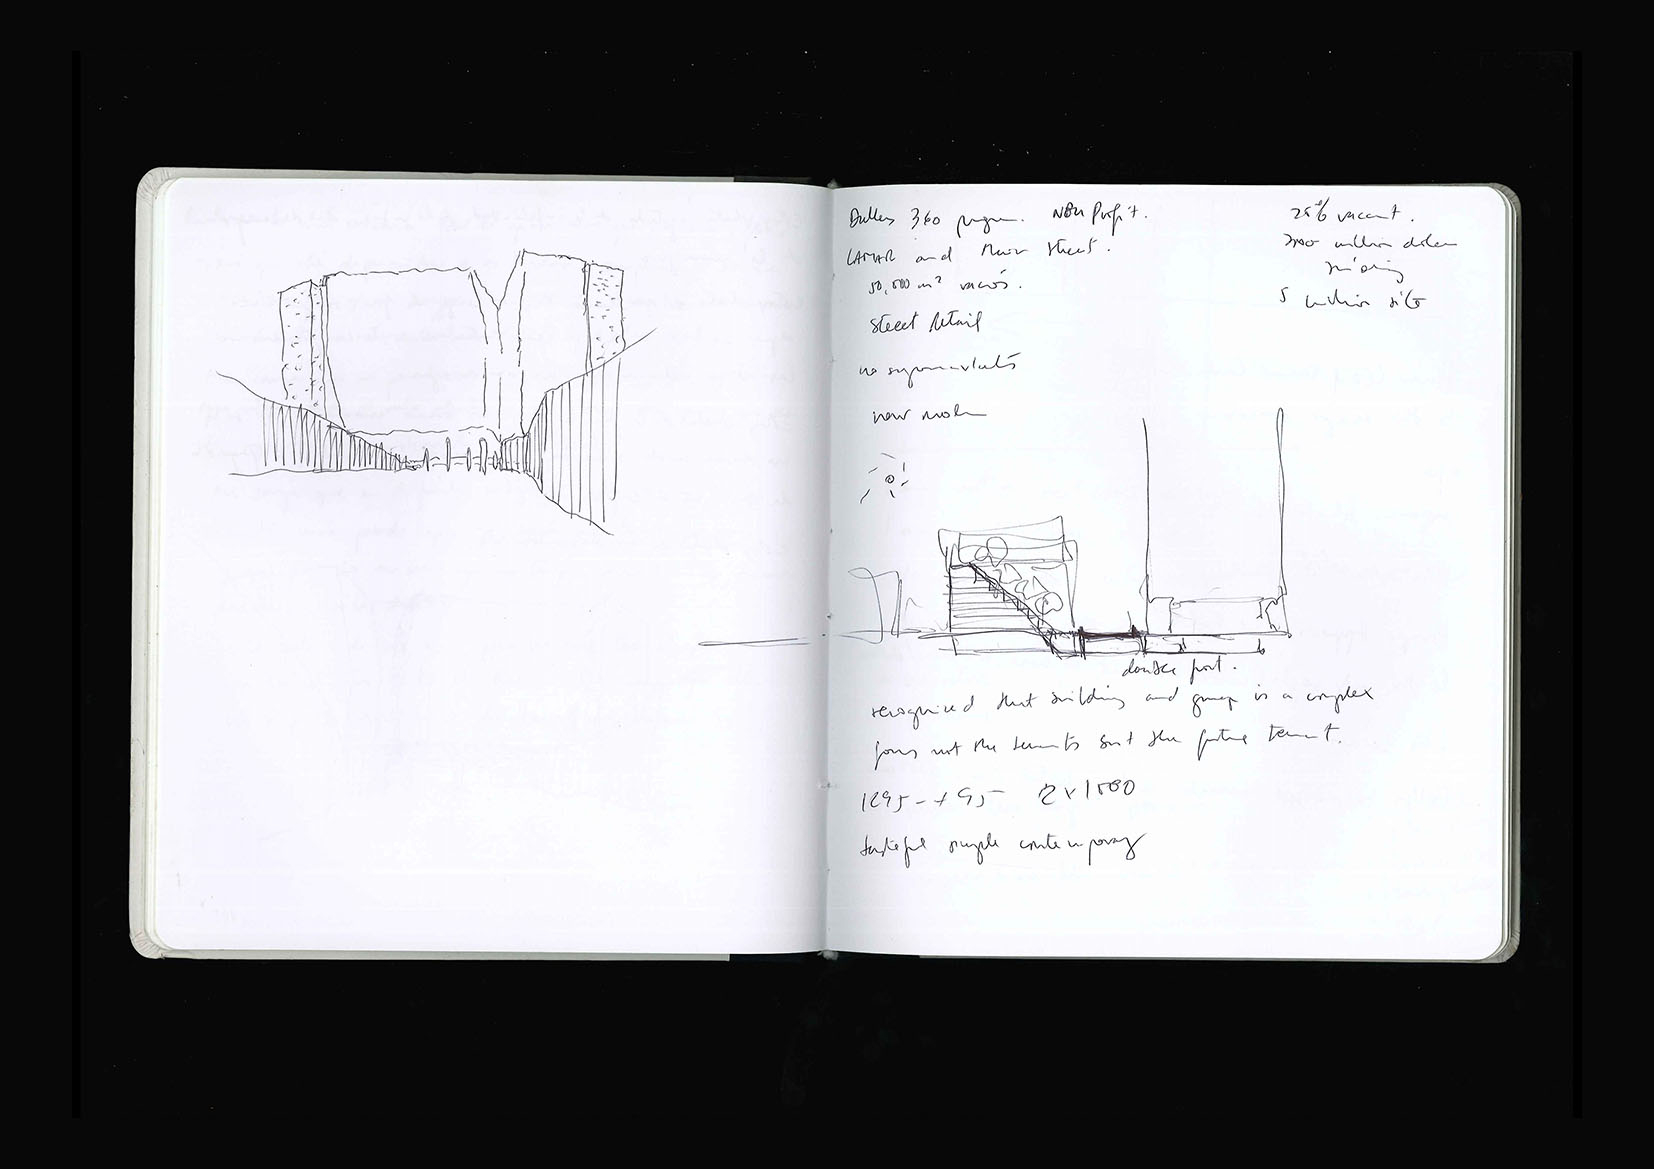 Dallas 360 program. Non Profit.
LAMAR and Main Street.
50,000 m² vacant.
Street Retail
no supermarkets
new
25% vacant.
million dollar
building
5 million site
double
recognized that building and garage is a complex
focus not the tenants but the future tenant.
1295 - + 95 2 x 1500
tasteful simple contemporary